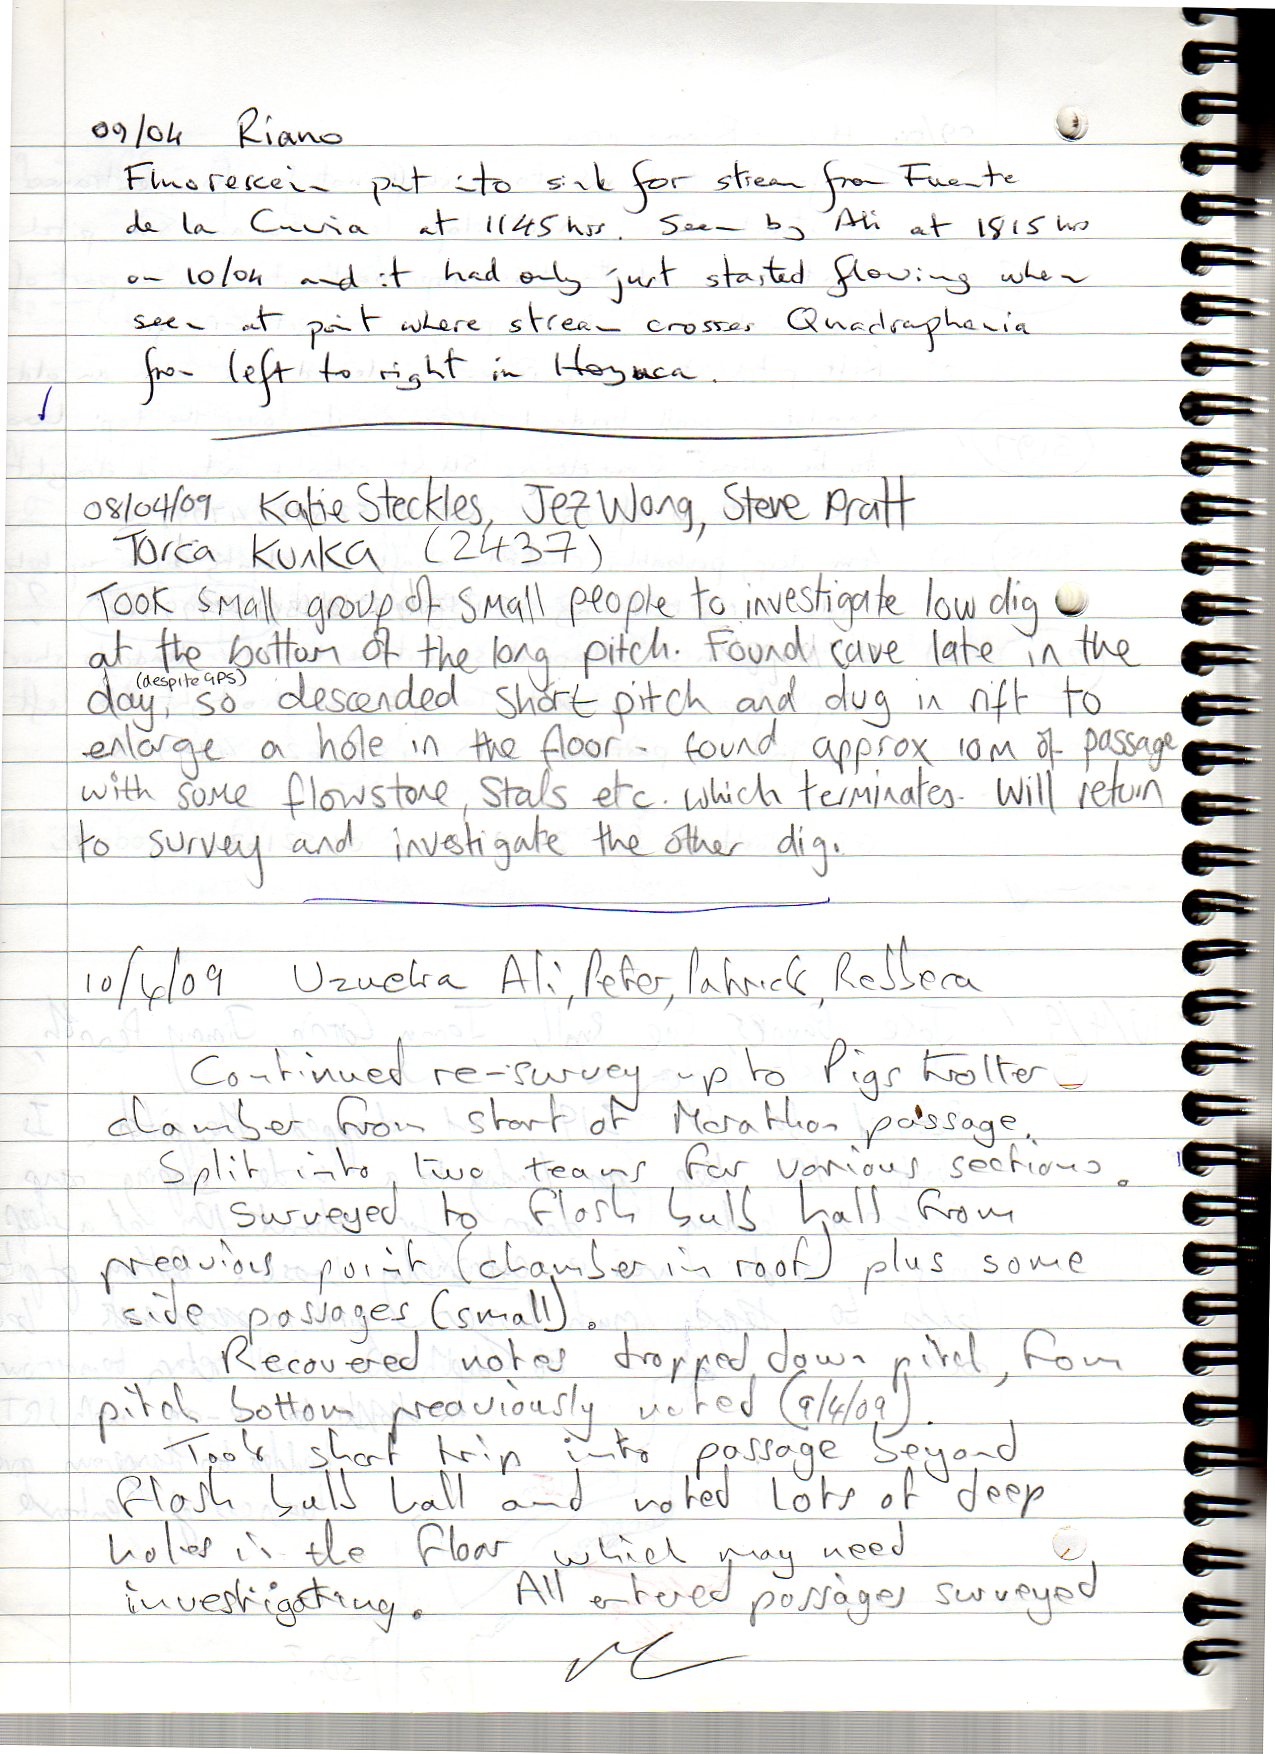 09/04 Riano
Fluorescein put into sink for stream from Fuente
de la Cuvia at 1145 hrs. Seen by Ali at 1815 hrs
on 10/04 and it had only just started flowing when
seen at point where stream crosses Quadraphenia
from left to right in Hoyuca.
08/04/09 Katie Steckles, Jez Wong, Steve Pratt
Torca Kunka (2437)
Took small group of small people to investigate low dig
at the bottom of the long pitch. Found cave late in the
(despite GPS)
day, so descended short pitch and dug in rift to
enlarge a hole in the floor - found approx 10m of passage
with some flowstone, stals etc. which terminates. Will return
to survey and investigate the other dig.
10/4/09 Uzueka Ali, Peter, Patrick, Rebbeca
Continued re-survey up to Pigs trotter
chamber from start of Marathon passage.
Split into two teams for various sections.
Surveyed to flash bulb hall from
preavious point (chamber in roof) plus some
side passages (small).
Recovered notes dropped down pitch, from
pitch bottom preaviously noted (9/4/09).
Took short trip into passage beyond
flash bulb hall and noted lots of deep
holes in the floor which may need
investigating. All entered passages surveyed